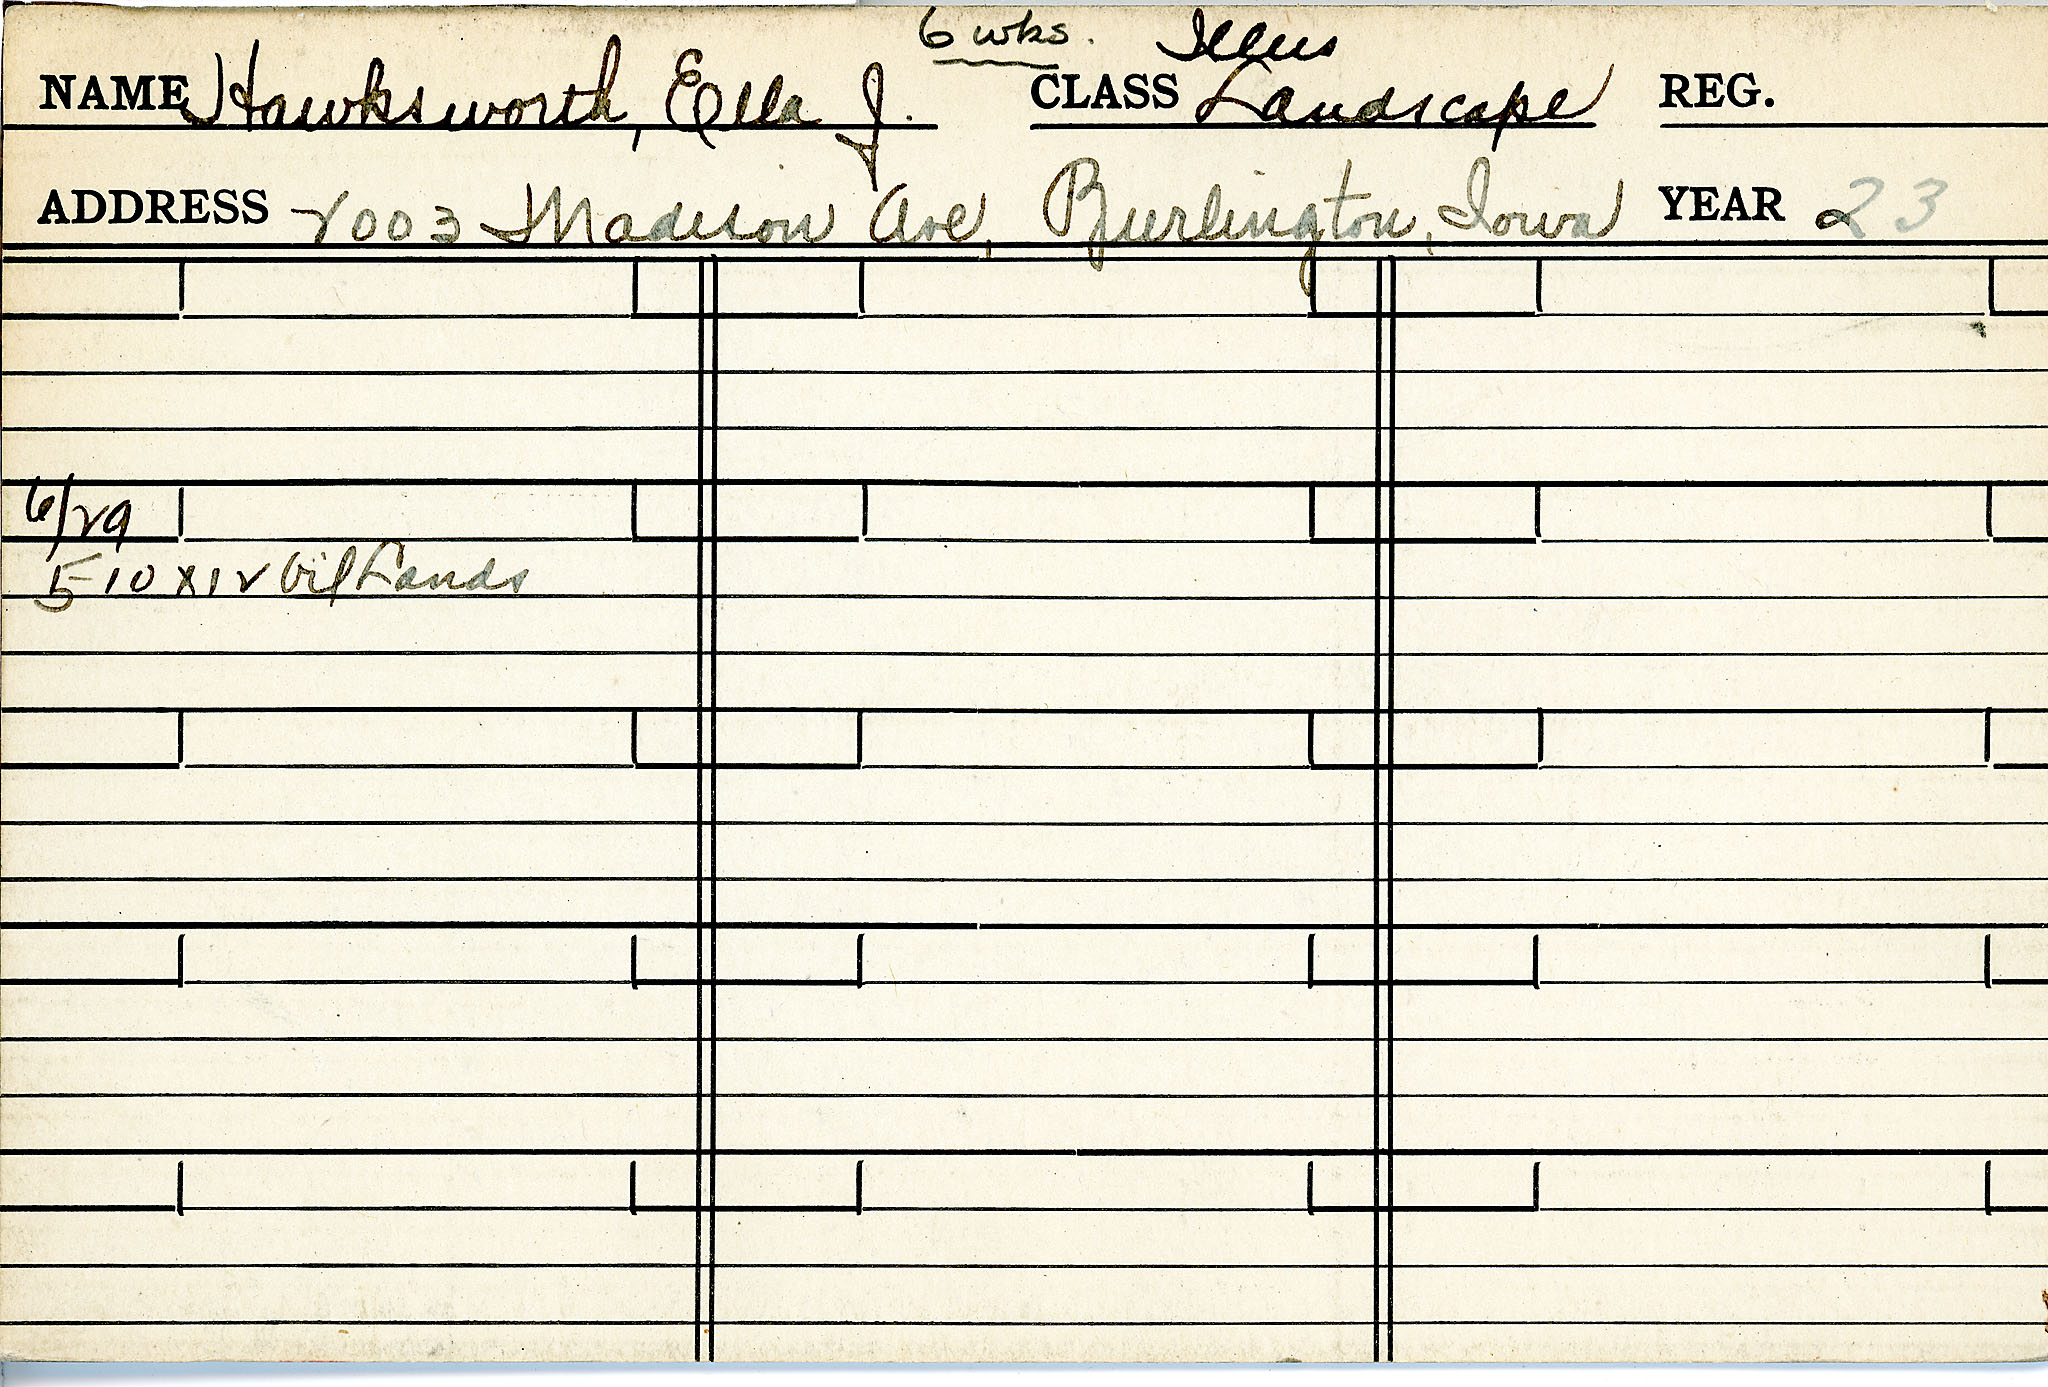 6 wks. Illus
NAME Hawksworth, Ella J. CLASS Landscape REG.
ADDRESS 2003 Madison Ave, Burlington, Iowa YEAR 23
6/29
5-10 x 12 Oil Lands